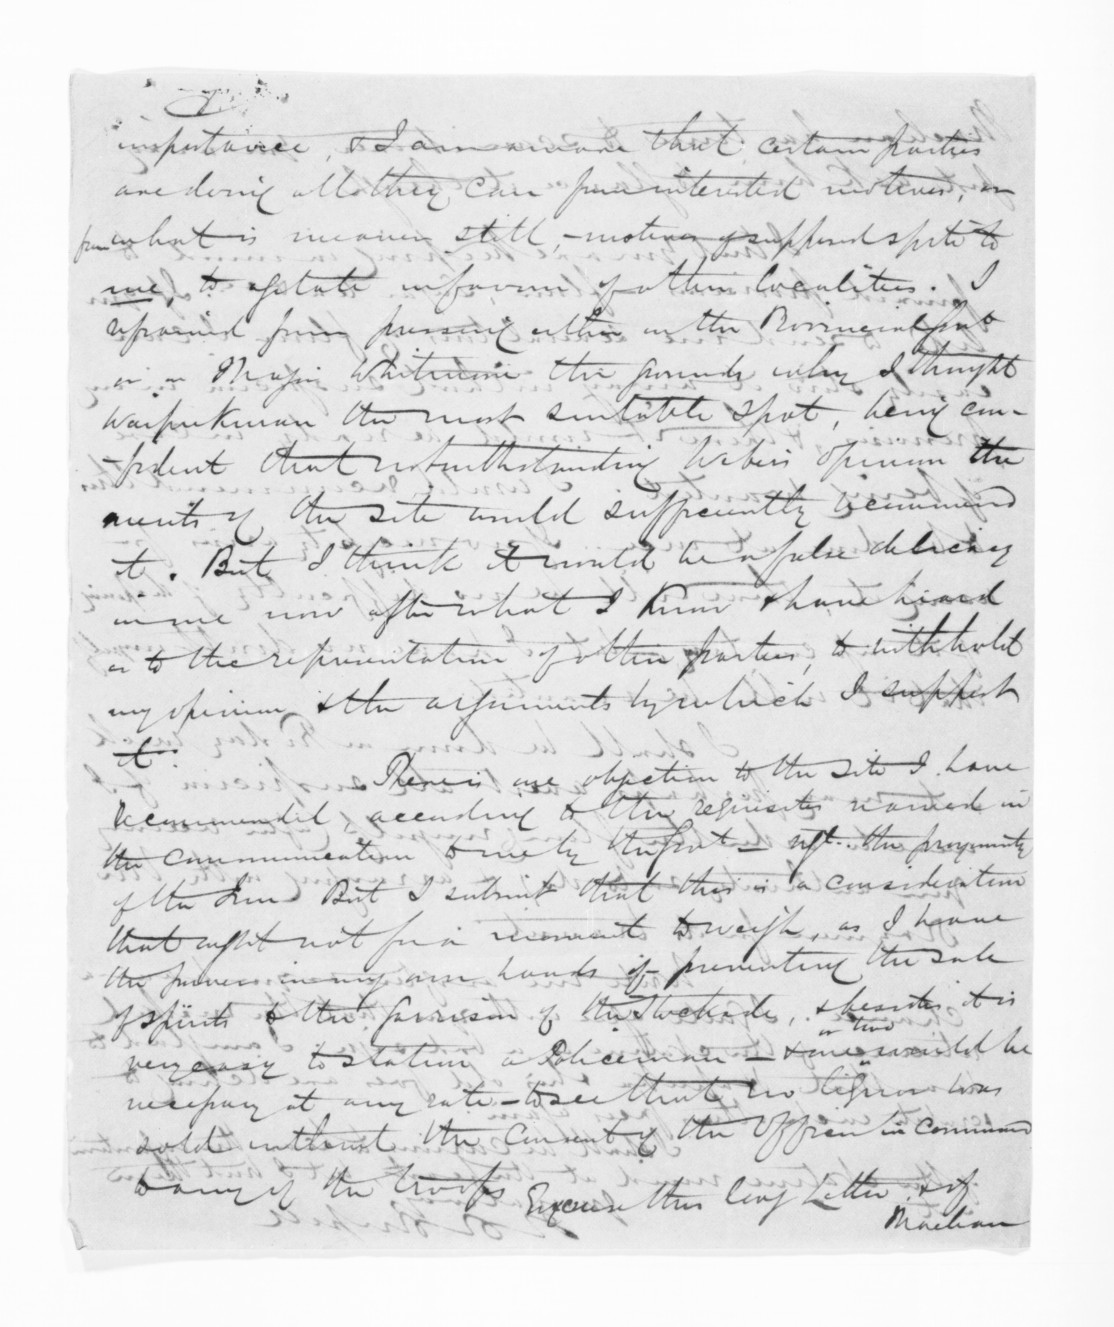 importance, & I am aware that certain parties
are doing all they can from interested motives, or
from what is meaner still, – motives of supposed spite to
me, to agitate in favour of other localities. I
refrained from pressing either on the Provincial Govt
or on Major Whitmore the grounds why I thought
Waipukurau the most suitable spot, being con-
-fident that notwithstanding Weber's opinion the
merits of the site would sufficiently recommend
it. But I think it would be a false delicacy
in me now after what I know & have heard
as to the representation of other parties, to withhold
my opinion & the arguments by which I support
it.
There is one objection to the site I have
recommended according to the requisites named in
the communication to me by the Govt – the proximity
of the Inn. But I submit that this is a consideration
that ought not for a moment to weigh, as I have
the power in my own hands of preventing the sale
of spirits to the garrison of the Stockade, & besides it is
very easy to station a Policeman – & one or two would be
necessary at any rate – to see that no liquor was
sold without the consent of the Officer in command
to any of the troops. Excuse this long Letter, & if
McLean